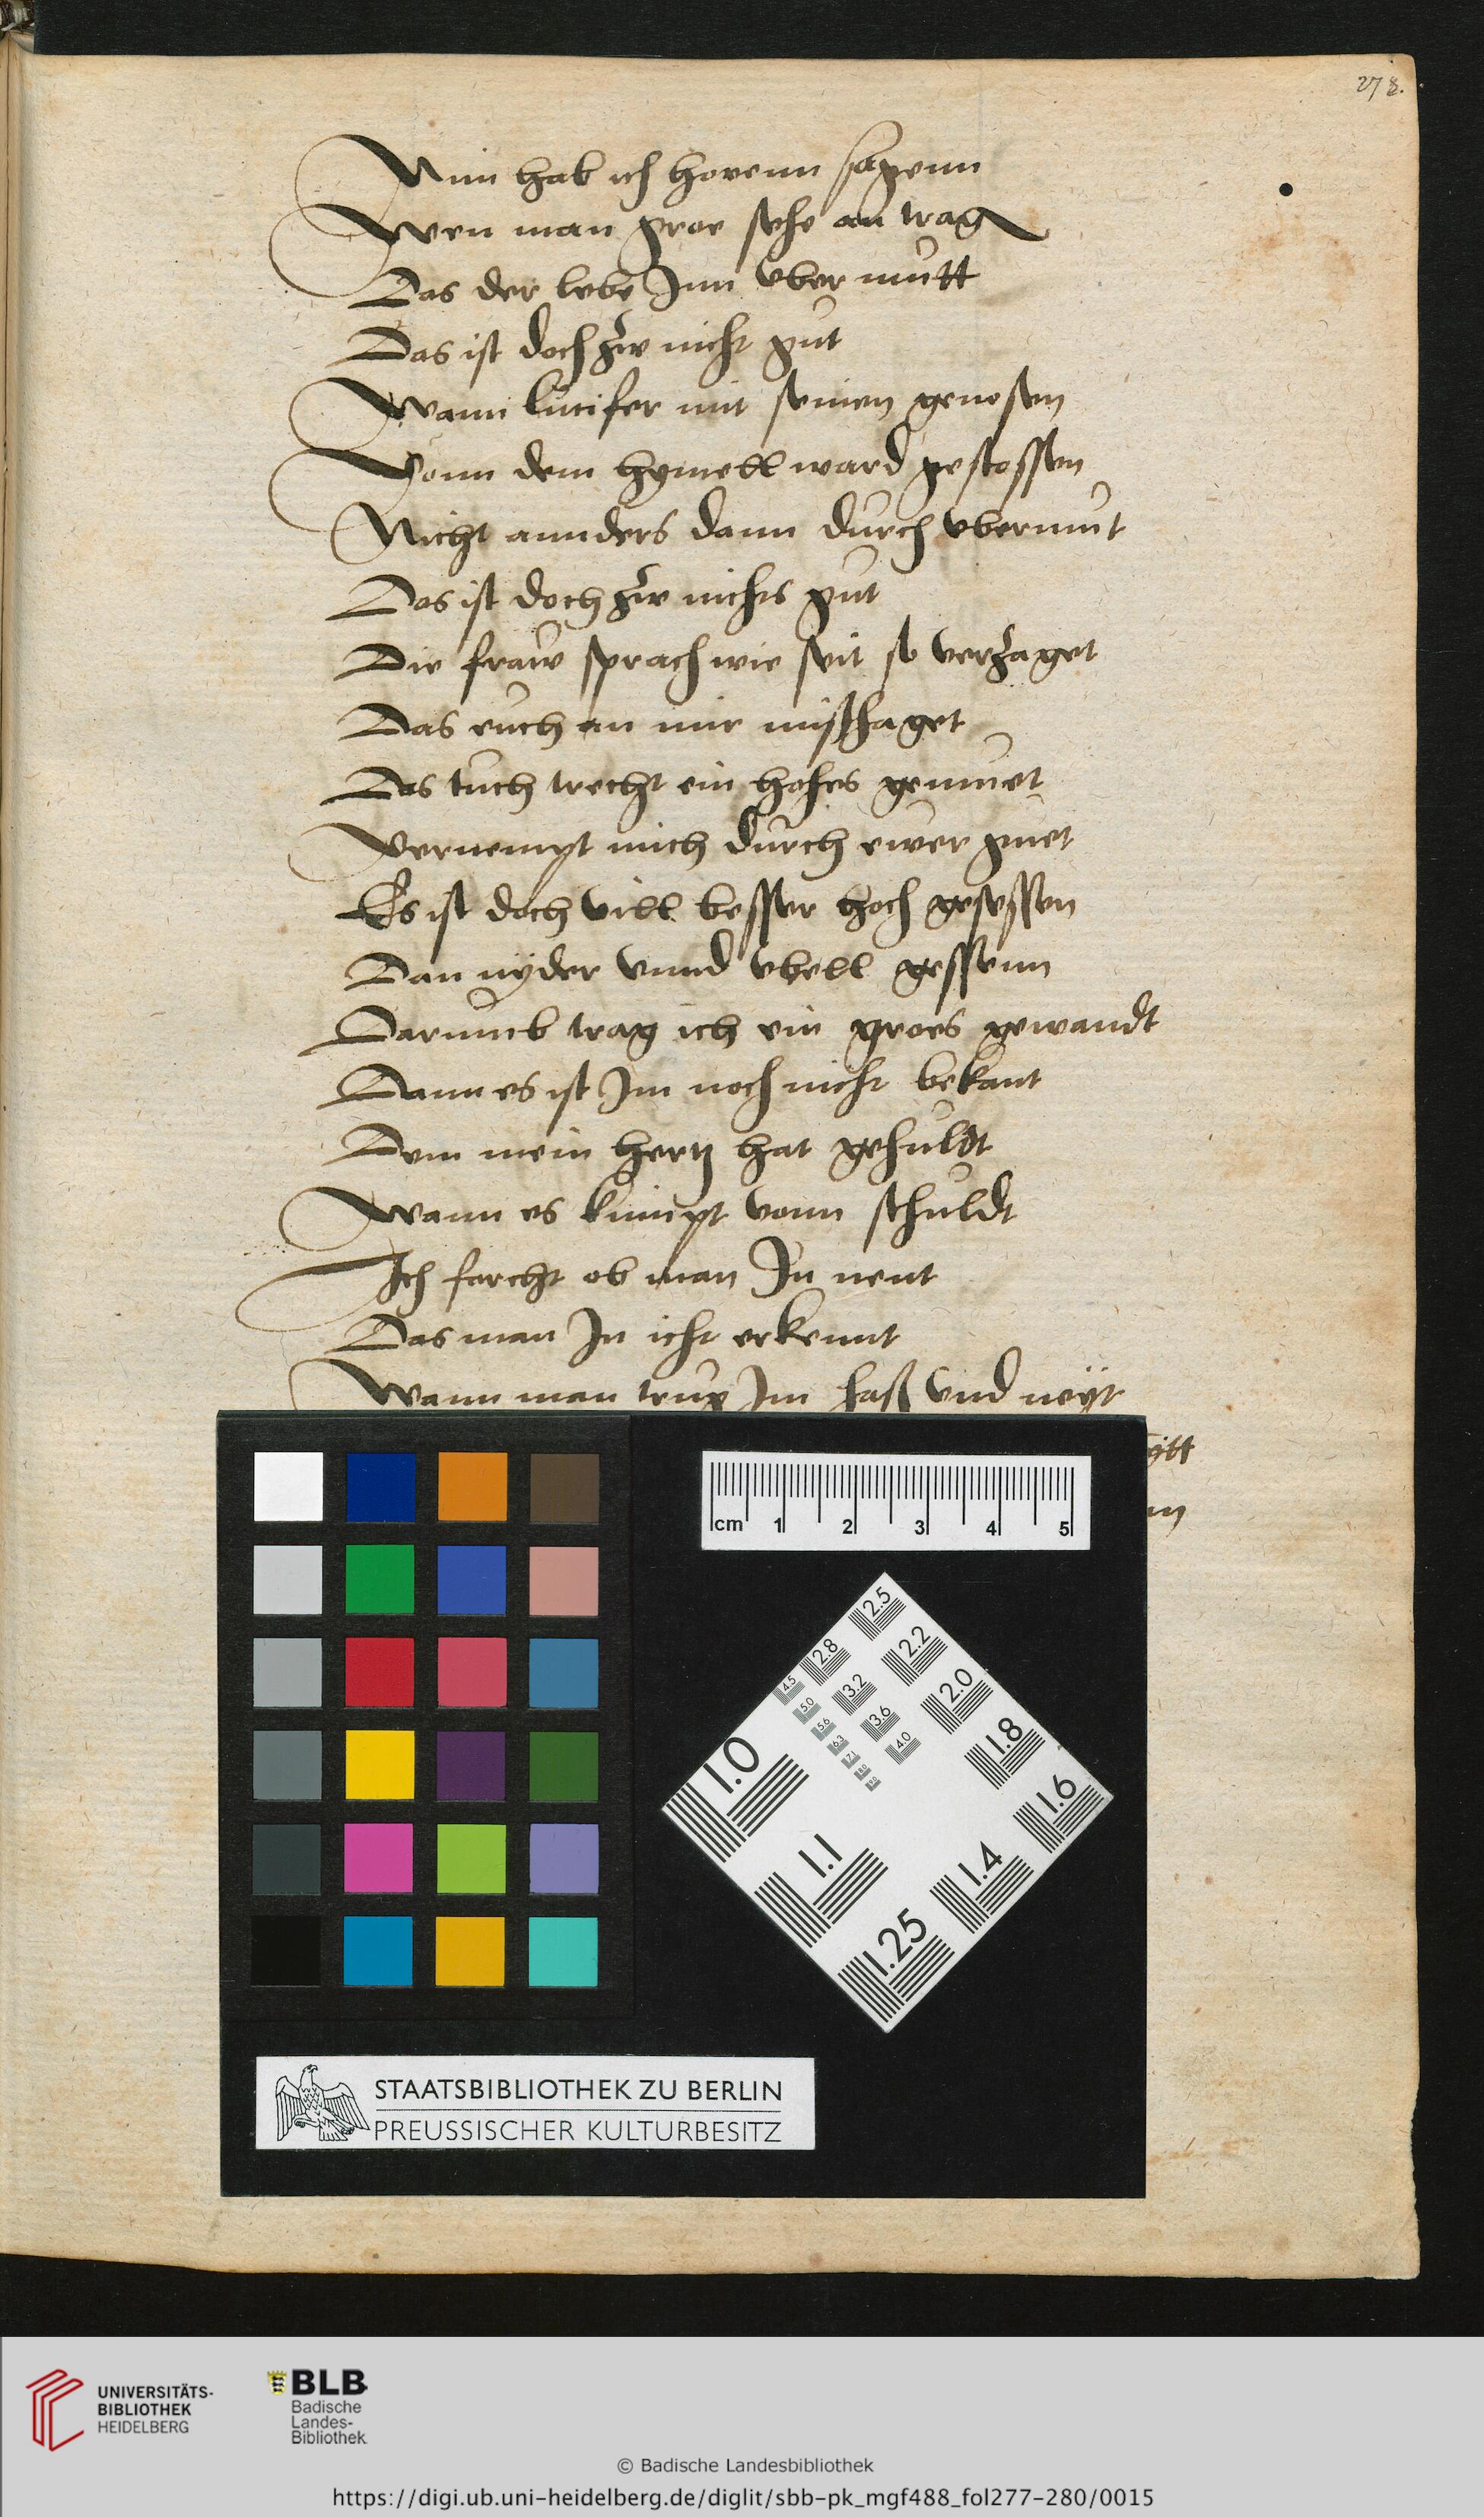 278.
Nun hab ich horenn sagenn
Wen man groe sehe an trag
Das der lebe Jnn vber mutt
Das ist doch zw nicht gut
Wann lucifer mit seinen genosen
Vonn dem hymell ward gestossen
Nicht annders dann durch vbermut
Das ist doch zw nichts gut
Die fraw sprach wie seit so verzaget
Das euch an mir misshaget
Das tuch trecht ein hohes gemuet
Vernempt mich durch ewer guet
Es ist doch vill besser hoch gesessen
Dan nyder vnnd vbell gessenn
Darumb trag ich ein groes gewandt
Dann es ist Jm noch nicht bekant
Dem mein hertz hat gehuldt
Wann es kumpt vonn schuldt
Ich forcht ob man Jn nent
Das man Jn icht erkennt
Wann man trug Jm haß vnd neyt
cm 1 2 3 4 5
2.5
2.8 2.2
4.5 3.2 2.0
5.0 3.6 1.8
5.6 4.0 1.6
6.3
1.0
1.1 1.4
1.25
STAATSBIBLIOTHEK ZU BERLIN
PREUSSISCHER KULTURBESITZ
UNIVERSITÄTS-
BIBLIOTHEK
HEIDELBERG
BLB
Badische
Landes-
Bibliothek
© Badische Landesbibliothek
https://digi.ub.uni-heidelberg.de/diglit/sbb-pk_mgf488_fol277-280/0015